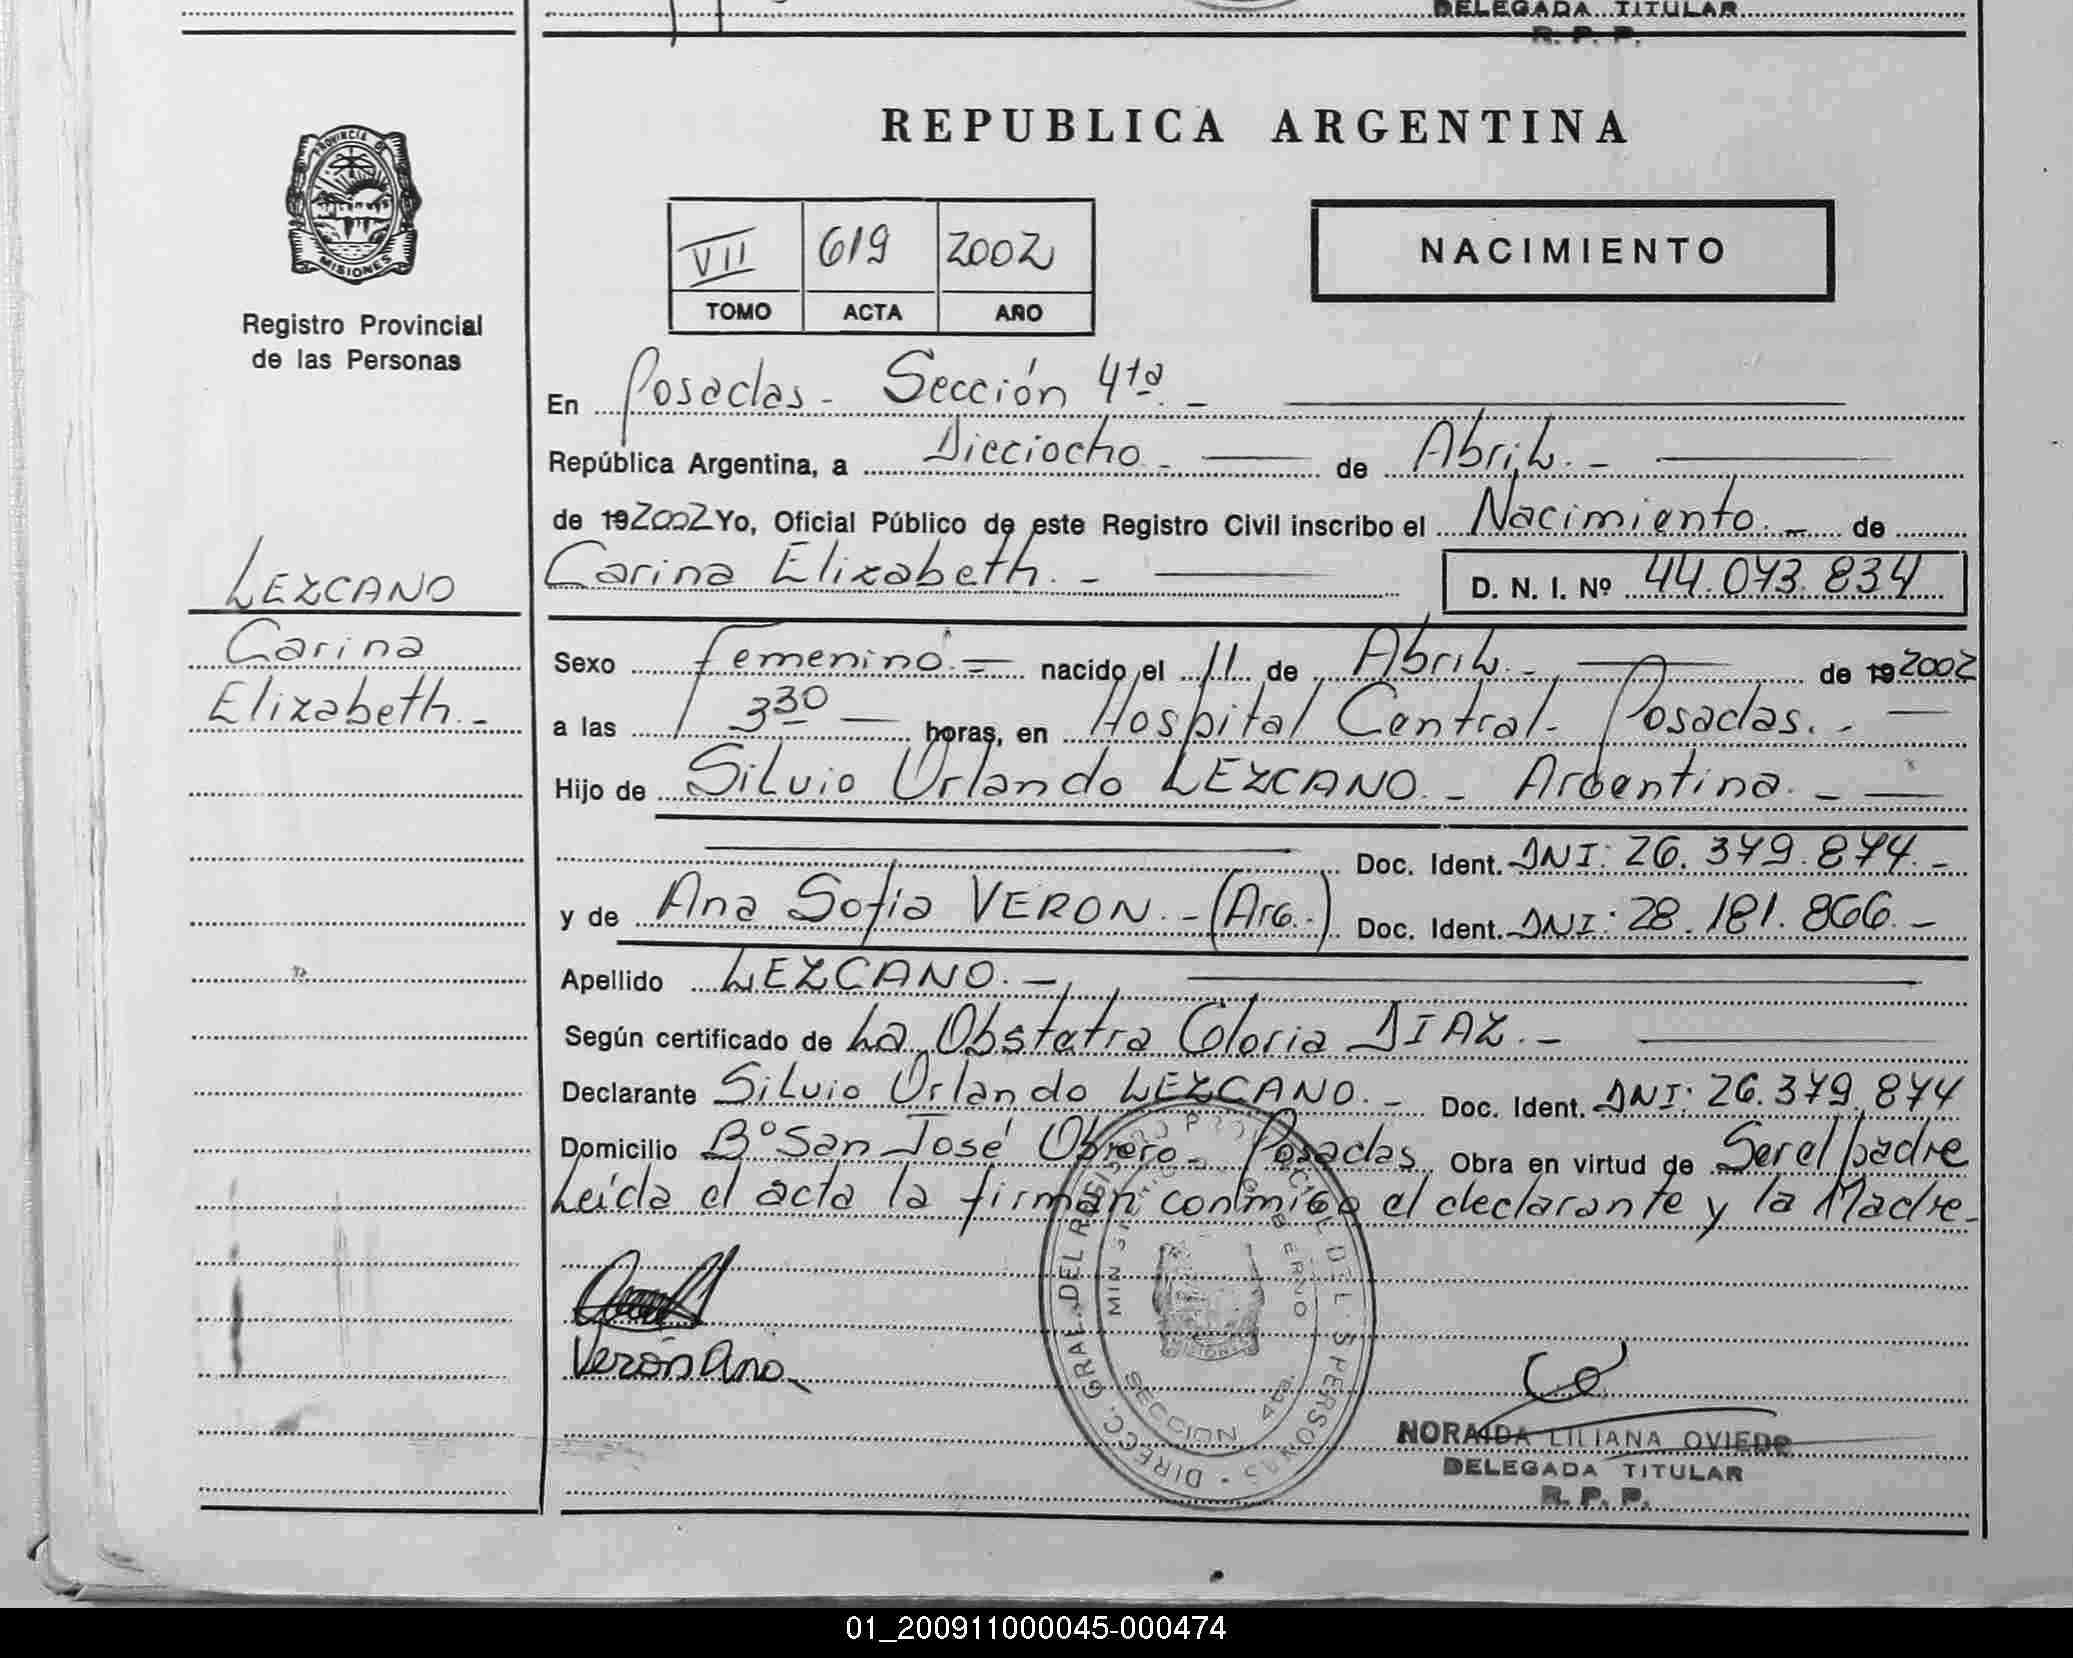 DELEGADA TITULAR
R. P. P.
PROVINCIA DE
MISIONES
Registro Provincial
de las Personas
REPUBLICA ARGENTINA
VII 619 2002
TOMO ACTA AÑO
NACIMIENTO
En Posadas - Sección 4ta. -
República Argentina, a Dieciocho - de Abril. -
de 192002 Yo, Oficial Público de este Registro Civil inscribo el Nacimiento. - de
Carina Elizabeth. - D. N. I. Nº 44.073.834
LEZCANO
Carina
Elizabeth. -
Sexo Femenino. = nacido el 11 de Abril. - de 192002
a las 3 30 horas, en Hospital Central - Posadas. -
Hijo de Silvio Orlando LEZCANO. - Argentina. -
Doc. Ident. DNI: 26.379.874. -
y de Ana Sofia VERON. - (Arg.) Doc. Ident. DNI: 28.181.866. -
Apellido LEZCANO. -
Según certificado de La Obstetra Gloria DIAZ. -
Declarante Silvio Orlando LEZCANO. - Doc. Ident. DNI: 26.379.874
Domicilio Bº San José Obrero - Posadas Obra en virtud de Ser el padre
Leída el acta la firman conmigo el declarante y la Madre -
Verón Ana
DIRECC. GRAL. DEL REGISTRO PROVINCIAL DE LAS PERSONAS
MINISTERIO DE GOBIERNO
MISIONES
SECCION 4ta.
NORAIDA LILIANA OVIEDO
DELEGADA TITULAR
R. P. P.
01_200911000045-000474